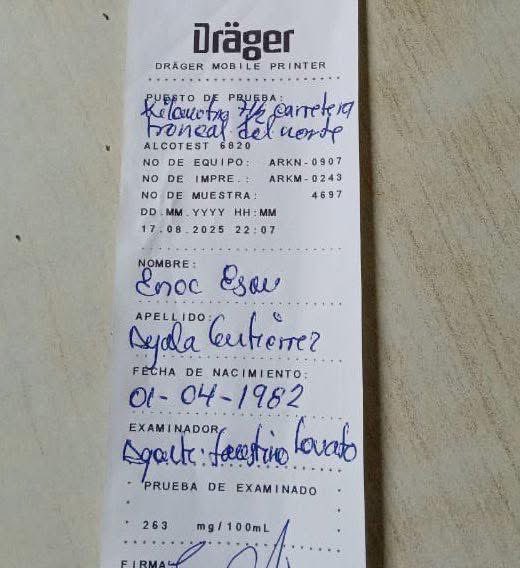 Dräger
DRÄGER MOBILE PRINTER
PUESTO DE PRUEBA:
Kilometro 7½ carretera
troncal del norte
ALCOTEST 6820
NO DE EQUIPO: ARKN-0907
NO DE IMPRE.: ARKM-0243
NO DE MUESTRA: 4697
DD.MM.YYYY HH:MM
17.08.2025 22:07
NOMBRE:
Enoc Esau
APELLIDO:
Ayala Gutierrez
FECHA DE NACIMIENTO:
01-04-1982
EXAMINADOR
Agente: Faustino Lovato
PRUEBA DE EXAMINADO
263 mg/100mL
FIRMA